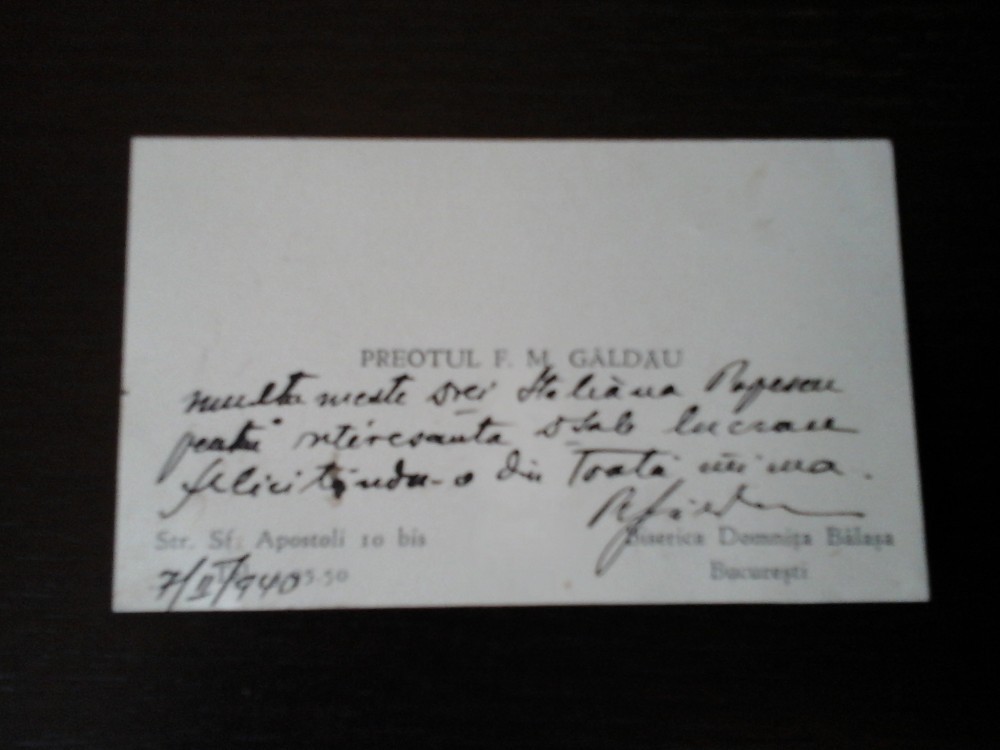 PREOTUL F. M. GÂLDĂU
multumeste Drei Italiana Popescu
pentru interesanta Dsale lucrare
felicitându-o din toată inima.
Str. Sf. Apostoli 10 bis
Biserica Domnița Bălașa
7/II/940 5.50
București